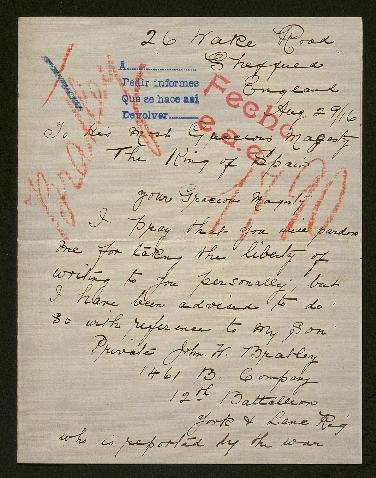 26 Wake Road
Sheffield
England
Aug. 29/16
A
Pedir informes
Que se hace así
Devolver
Fecho
To His Most Gracious Magesty
The King of Spain
your Gracious Magesty
I pray that you will pardon
me for taking the liberty of
writing to you personally, but
I have been advised to do
so with reference to my Son
Private John. W. Bratley
1461 B. Company
12th Battallion
York & Lanc Reg
who is reported by the war